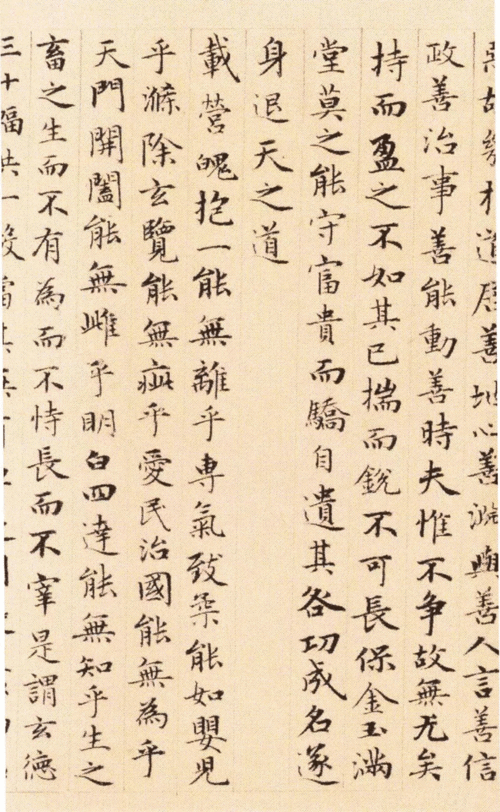 惡故幾於道居善地心善淵與善人言善信
政善治事善能動善時夫惟不争故無尤矣
持而盈之不如其已揣而銳不可長保金玉滿
堂莫之能守富貴而驕自遺其咎功成名遂
身退天之道
載營魄抱一能無離乎專氣致柔能如嬰兒
乎滌除玄覽能無疵乎愛民治國能無為乎
天門開闔能無雌乎明白四達能無知乎生之
畜之生而不有為而不恃長而不宰是謂玄德
三十輻共一轂當其無有